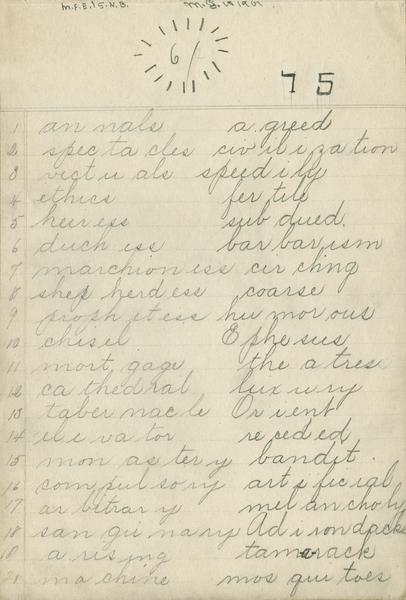 M.F.E. 15. N.B.
6
75
1 an nals a greed
2 spec ta cles civ il i za tion
3 vict u als speed i ly
4 ethics fer tile
5 heir ess sub dued.
6 duch ess bar bar ism
7 marchion ess cir cling
8 shep herd ess coarse
9 proph et ess hu mor ous
10 chis el Eph e sus
11 mort gage the a tres
12 ca the dral lux u ry
13 tab er nac le O ri ent
14 el e va tor re ced ed
15 mon as ter y bandit.
16 com pul so ry art i ficial
17 ar bi tra ry mel an chol y
18 san gui na ry Ad i ron dacks
19 a ris ing tam a rack
21 ma chine mos qui toes